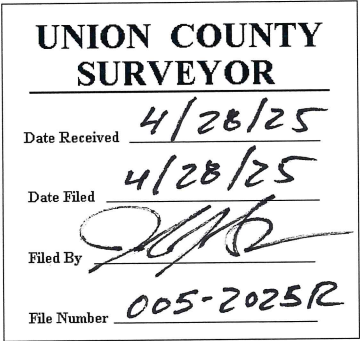 UNION COUNTY
SURVEYOR
Date Received 4/28/25
Date Filed 4/28/25
Filed By
File Number 005-2025R